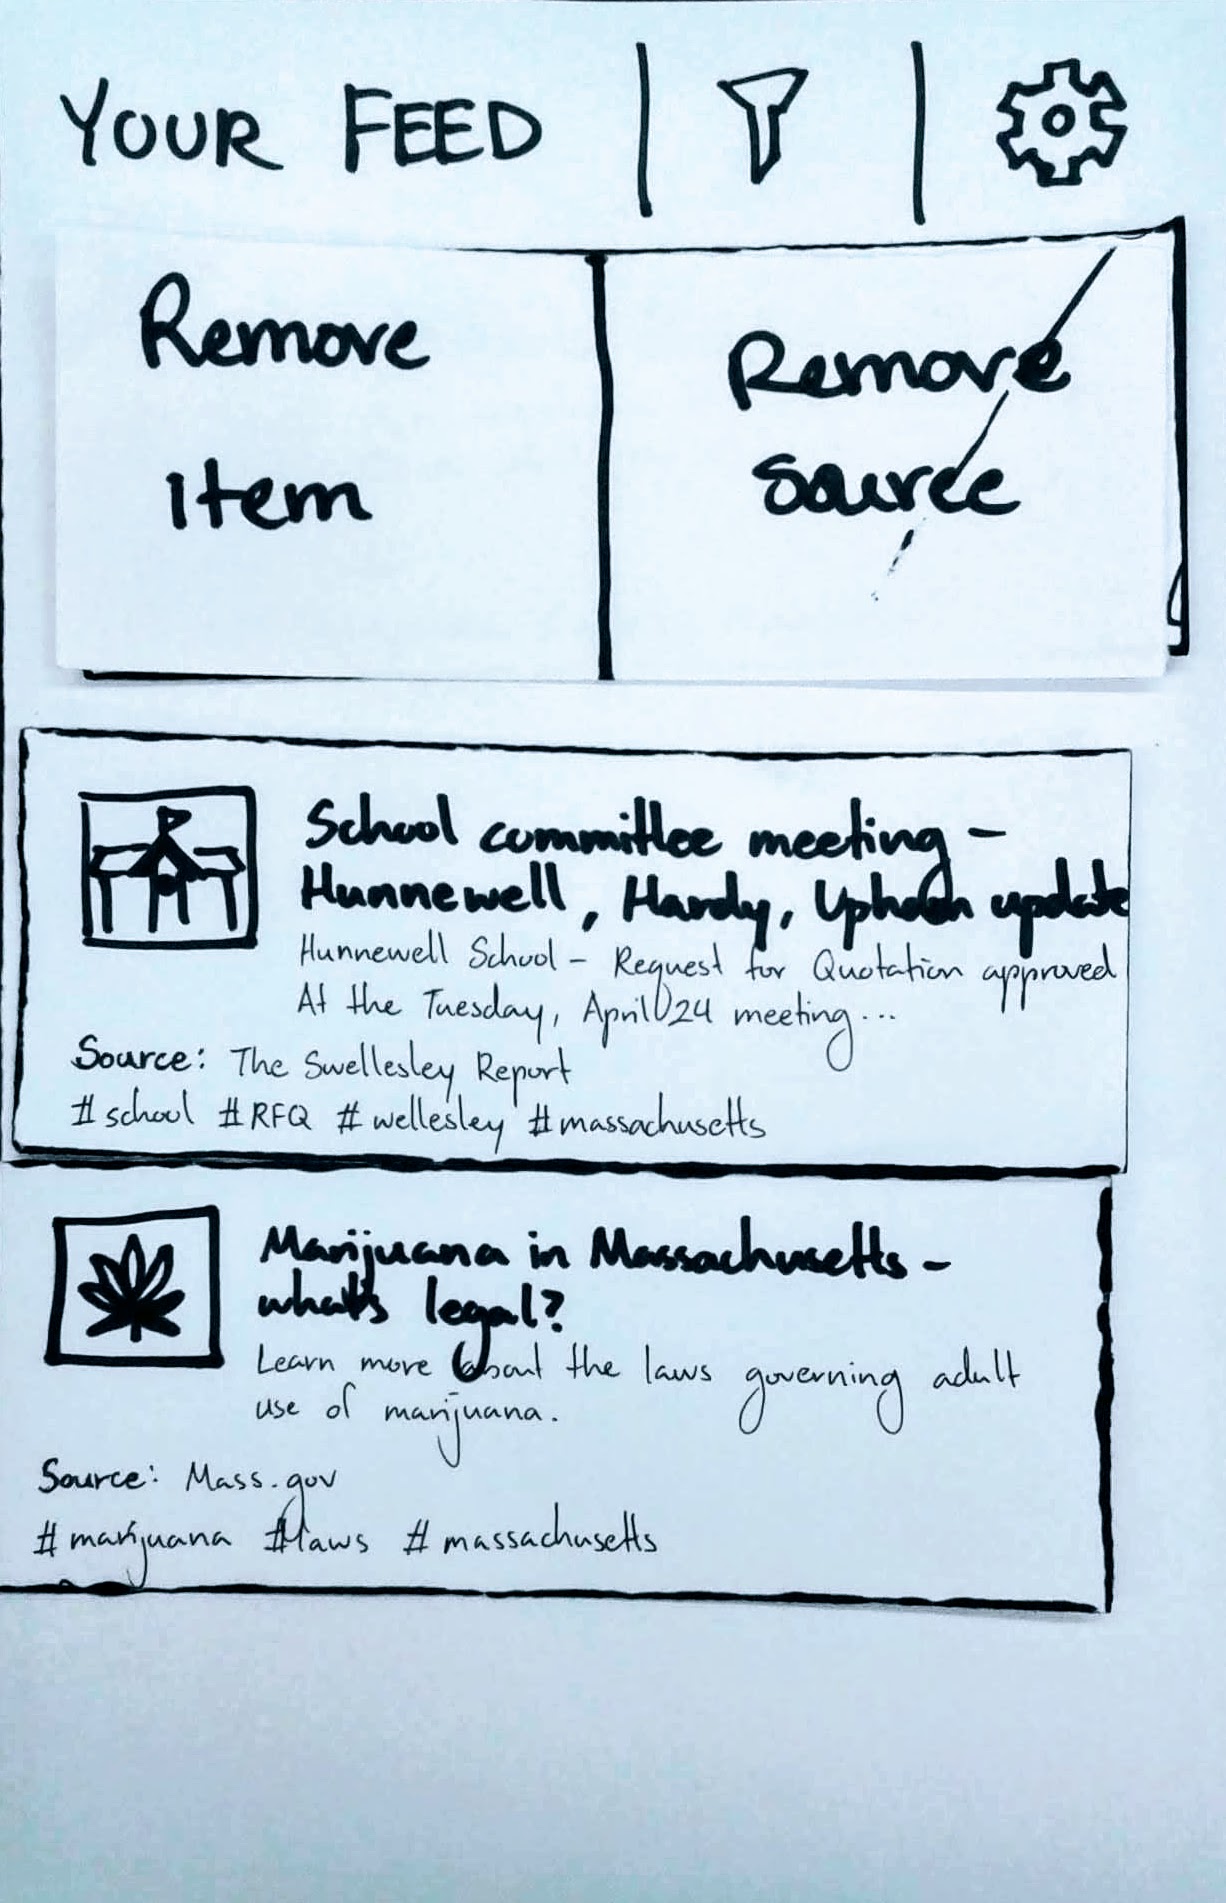 YOUR FEED
Remove
Item
Remove
Source
School committee meeting -
Hunnewell, Hardy, Upham update
Hunnewell School - Request for Quotation approved
At the Tuesday, April 24 meeting...
Source: The Swellesley Report
#school #RFQ #wellesley #massachusetts
Marijuana in Massachusetts -
what's legal?
Learn more about the laws governing adult
use of marijuana.
Source: Mass.gov
#marijuana #laws #massachusetts